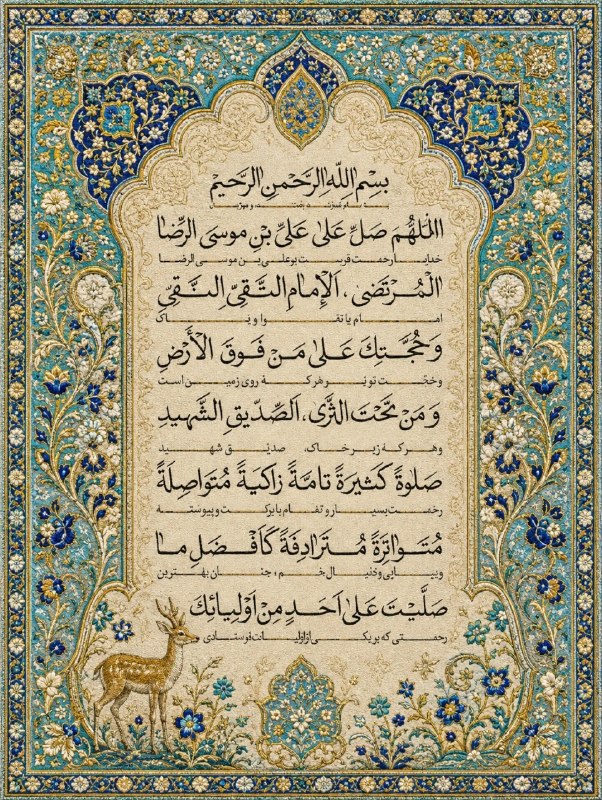 بِسْمِ اللّهِ الرَّحْمنِ الرَّحيمِ
اللّهُمَ صَلِّ عَلى عَلىِّ بْنِ موسَى الرِّضا
خدایا رحمت فرست بر علی بن موسی الرضا
الْمُرْتَضى، الْاِمامِ التَّقىِّ النَّقىِّ
امام با تقوا و پاک
وَحُجَّتِكَ عَلى مَنْ فَوْقَ الْأَرْضِ
تو بر هر که روی زمین است
وَ مَنْ تَحْتَ الثَّرى، اَلصِّدّيقِ الشَّهيدِ
و هر که زیر خاک، صدیق شهید
صَلوةً كَثيرَةً تامَّةً زاكِيَةً مُتَواصِلَةً
رحمت بسیار و تمام با برکت و پیوسته
مُتَواتِرَةً مُتَرادِفَةً كَاَفْضَلِ ما
بهترین
صَلَّيْتَ عَلى اَحَدٍ مِنْ اَوْلِيائِكَ
رحمتی که بر یکی از فرستادی